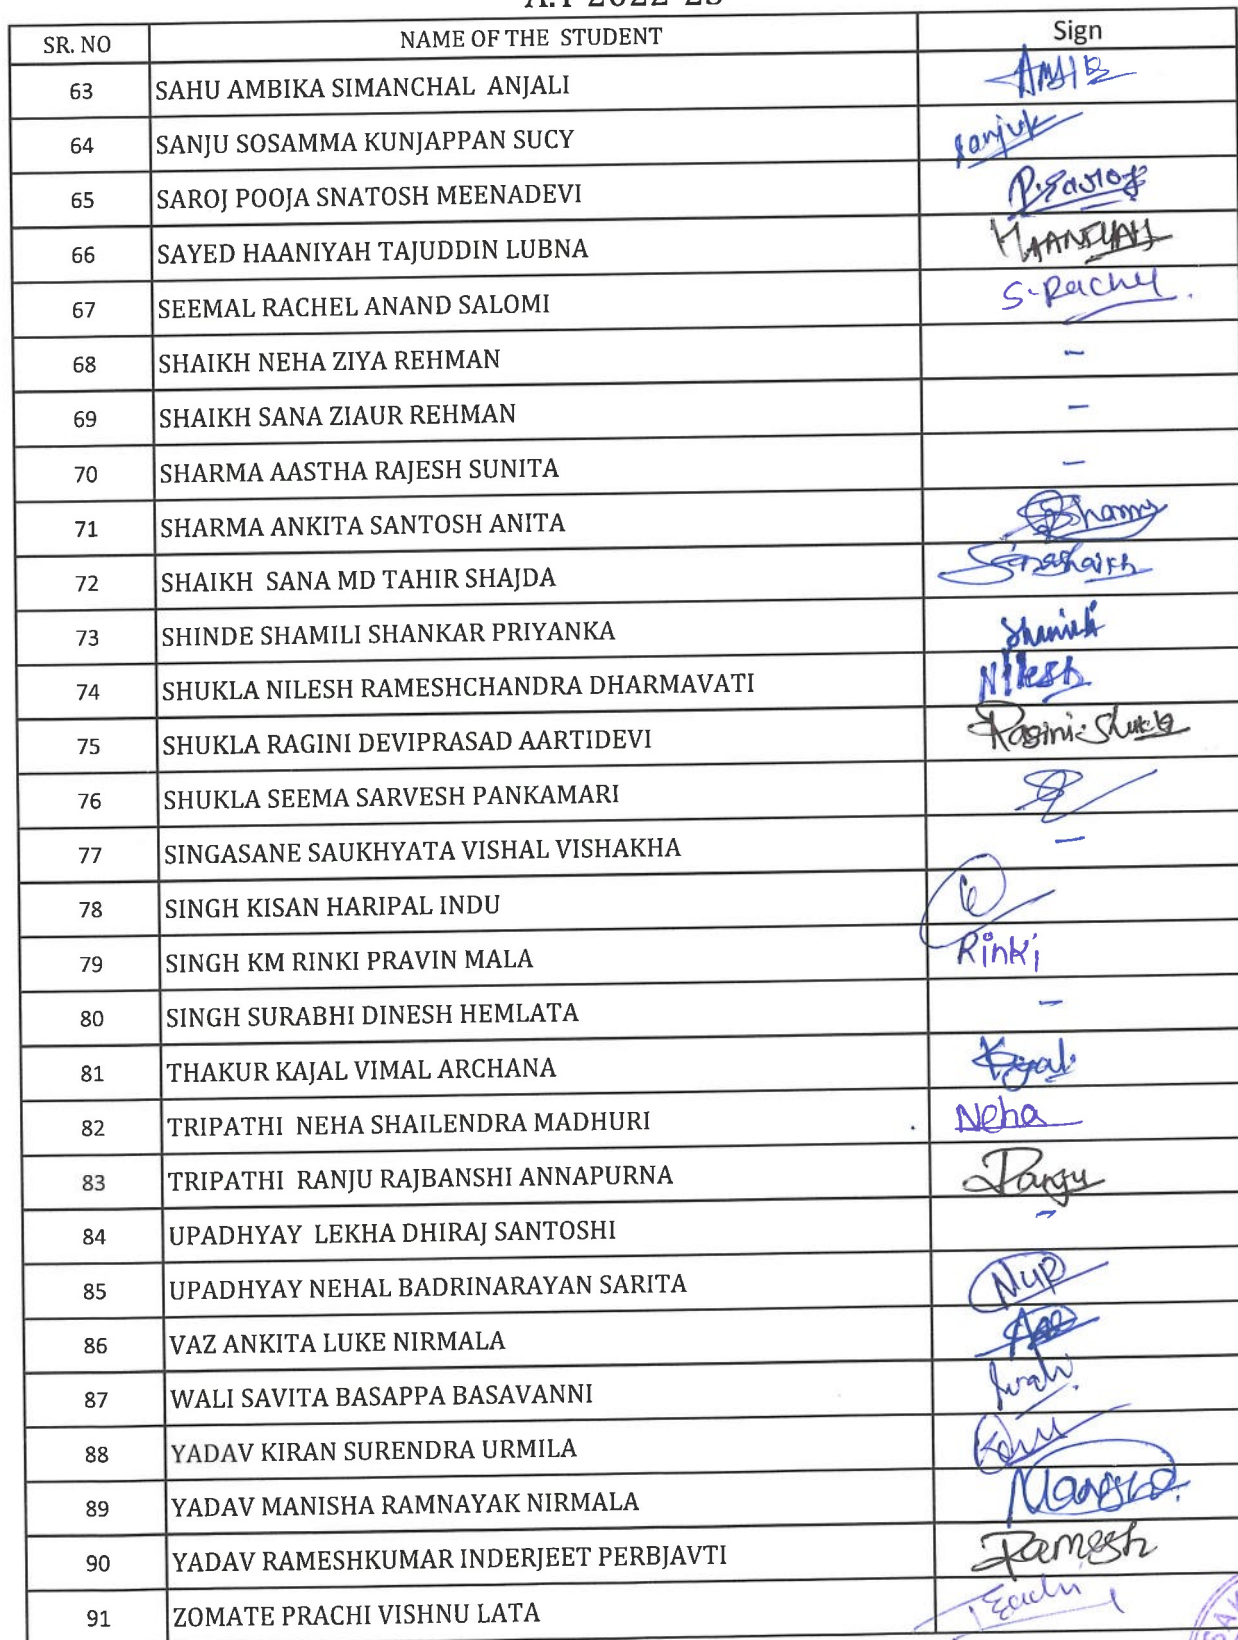 A.Y 2022-23
SR. NO NAME OF THE STUDENT Sign
63 SAHU AMBIKA SIMANCHAL ANJALI
64 SANJU SOSAMMA KUNJAPPAN SUCY Sanjuk
65 SAROJ POOJA SNATOSH MEENADEVI P.Saroj
66 SAYED HAANIYAH TAJUDDIN LUBNA HAANIYAH
67 SEEMAL RACHEL ANAND SALOMI S-Rachel
68 SHAIKH NEHA ZIYA REHMAN -
69 SHAIKH SANA ZIAUR REHMAN -
70 SHARMA AASTHA RAJESH SUNITA -
71 SHARMA ANKITA SANTOSH ANITA
72 SHAIKH SANA MD TAHIR SHAJDA Sanashaikh
73 SHINDE SHAMILI SHANKAR PRIYANKA Shamili
74 SHUKLA NILESH RAMESHCHANDRA DHARMAVATI Nilesh
75 SHUKLA RAGINI DEVIPRASAD AARTIDEVI Ragini.Shukla
76 SHUKLA SEEMA SARVESH PANKAMARI
77 SINGASANE SAUKHYATA VISHAL VISHAKHA -
78 SINGH KISAN HARIPAL INDU
79 SINGH KM RINKI PRAVIN MALA Rinki
80 SINGH SURABHI DINESH HEMLATA -
81 THAKUR KAJAL VIMAL ARCHANA Kajal
82 TRIPATHI NEHA SHAILENDRA MADHURI Neha
83 TRIPATHI RANJU RAJBANSHI ANNAPURNA Ranju
84 UPADHYAY LEKHA DHIRAJ SANTOSHI -
85 UPADHYAY NEHAL BADRINARAYAN SARITA NUP
86 VAZ ANKITA LUKE NIRMALA
87 WALI SAVITA BASAPPA BASAVANNI
88 YADAV KIRAN SURENDRA URMILA
89 YADAV MANISHA RAMNAYAK NIRMALA Manisha
90 YADAV RAMESHKUMAR INDERJEET PERBJAVTI Ramesh
91 ZOMATE PRACHI VISHNU LATA